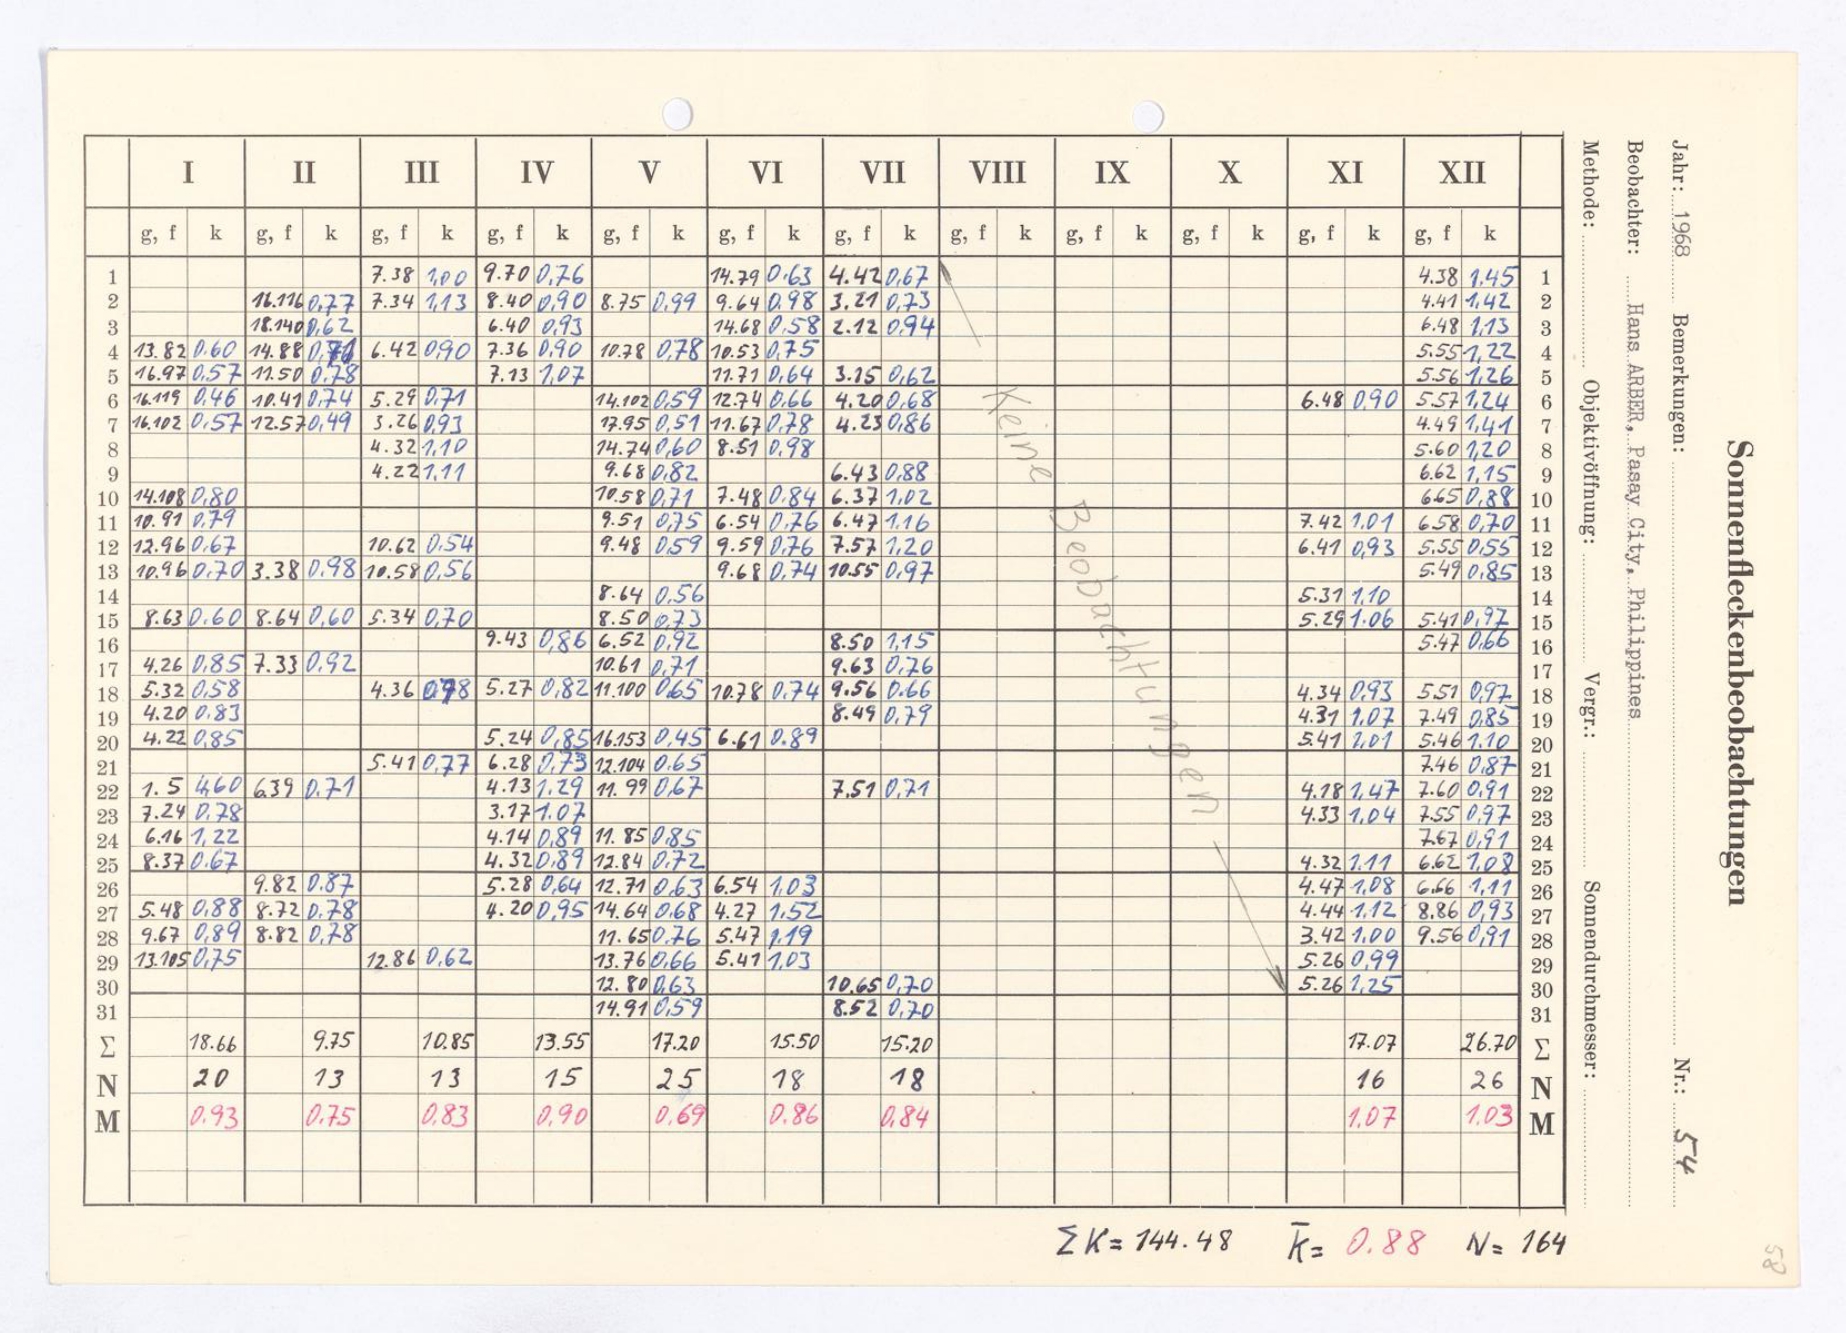 Sonnenfleckenbeobachtungen
Jahr: 1968 Bemerkungen: Nr.: 54
Beobachter: Hans ARBER, Pasay City, Philippines
Methode: Objektivöffnung: Vergr.: Sonnendurchmesser:
I II III IV V VI VII VIII IX X XI XII
g, f k g, f k g, f k g, f k g, f k g, f k g, f k g, f k g, f k g, f k g, f k g, f k
1 7.38 1,00 9.70 0,76 14.79 0.63 4.42 0,67 4.38 1,45 1
2 16.116 0,77 7.34 1,13 8.40 0,90 8.75 0,99 9.64 0,98 3.21 0,73 4.41 1,42 2
3 18.140 0,62 6.40 0,93 14.68 0,58 2.12 0,94 6.48 1,13 3
4 13.82 0.60 14.88 6.42 0,90 7.36 0,90 10.78 0,78 10.53 0,75 5.55 1,22 4
5 16.97 0,57 11.50 0,78 7.13 1,07 11.71 0,64 3.15 0,62 5.56 1,26 5
6 16.119 0,46 10.41 0,74 5.29 0,71 14.102 0,59 12.74 0,66 4.20 0,68 6.48 0,90 5.57 1,24 6
7 16.102 0,57 12.57 0,49 3.26 0,93 17.95 0,51 11.67 0,78 4.23 0,86 4.49 1,41 7
8 4.32 1,10 14.74 0,60 8.51 0,98 5.60 1,20 8
9 4.22 1,11 9.68 0,82 6.43 0,88 6.62 1,15 9
10 14.108 0,80 10.58 0,71 7.48 0,84 6.37 1,02 6.65 0,88 10
11 10.91 0,79 9.51 0,75 6.54 0,76 6.47 1,16 7.42 1,01 6.58 0,70 11
12 12.96 0,67 10.62 0,54 9.48 0,59 9.59 0,76 7.57 1,20 6.41 0,93 5.55 0,55 12
13 10.96 0,70 3.38 0,98 10.58 0,56 9.68 0,74 10.55 0,97 5.49 0,85 13
14 8.64 0,56 5.31 1,10 14
15 8.63 0.60 8.64 0,60 5.34 0,70 8.50 0,73 5.29 1.06 5.41 0,97 15
16 9.43 0,86 6.52 0,92 8.50 1,15 5.47 0,66 16
17 4.26 0,85 7.33 0,92 10.61 0,71 9.63 0,76 17
18 5.32 0,58 4.36 5.27 0,82 11.100 0,65 10.78 0,74 9.56 0.66 4.34 0,93 5.51 0,97 18
19 4.20 0.83 8.49 0,79 4.31 1,07 7.49 0,85 19
20 4.22 0,85 5.24 0,85 16.153 0,45 6.61 0.89 5.41 1,01 5.46 1.10 20
21 5.41 0,77 6.28 0,73 12.104 0.65 7.46 0,87 21
22 1.5 4,60 6.39 0.71 4.13 1,29 11.99 0,67 7.51 0,71 4.18 1,47 7.60 0,91 22
23 7.24 0,78 3.17 1.07 4.33 1,04 7.55 0,97 23
24 6.16 1,22 4.14 0,89 11.85 0,85 7.67 0,91 24
25 8.37 0.67 4.32 0,89 12.84 0,72 4.32 1,11 6.62 1,08 25
26 9.82 0.87 5.28 0,64 12.71 0,63 6.54 1,03 4.47 1,08 6.66 1,11 26
27 5.48 0,88 8.72 0,78 4.20 0,95 14.64 0.68 4.27 1,52 4.44 1,12 8.86 0,93 27
28 9.67 0,89 8.82 0,78 11.65 0.76 5.47 1,19 3.42 1,00 9.56 0,91 28
29 13.105 0,75 12.86 0,62 13.76 0,66 5.41 1,03 5.26 0,99 29
30 12.80 0,63 10.65 0,70 5.26 1,25 30
31 14.91 0,59 8.52 0,70 31
Keine Beobachtungen
Σ 18.66 9.75 10.85 13.55 17.20 15.50 15.20 17.07 26.70 Σ
N 20 13 13 15 25 18 18 16 26 N
M 0.93 0.75 0,83 0,90 0,69 0.86 0,84 1.07 1.03 M
ΣK = 144.48 k̄ = 0.88 N = 164
58